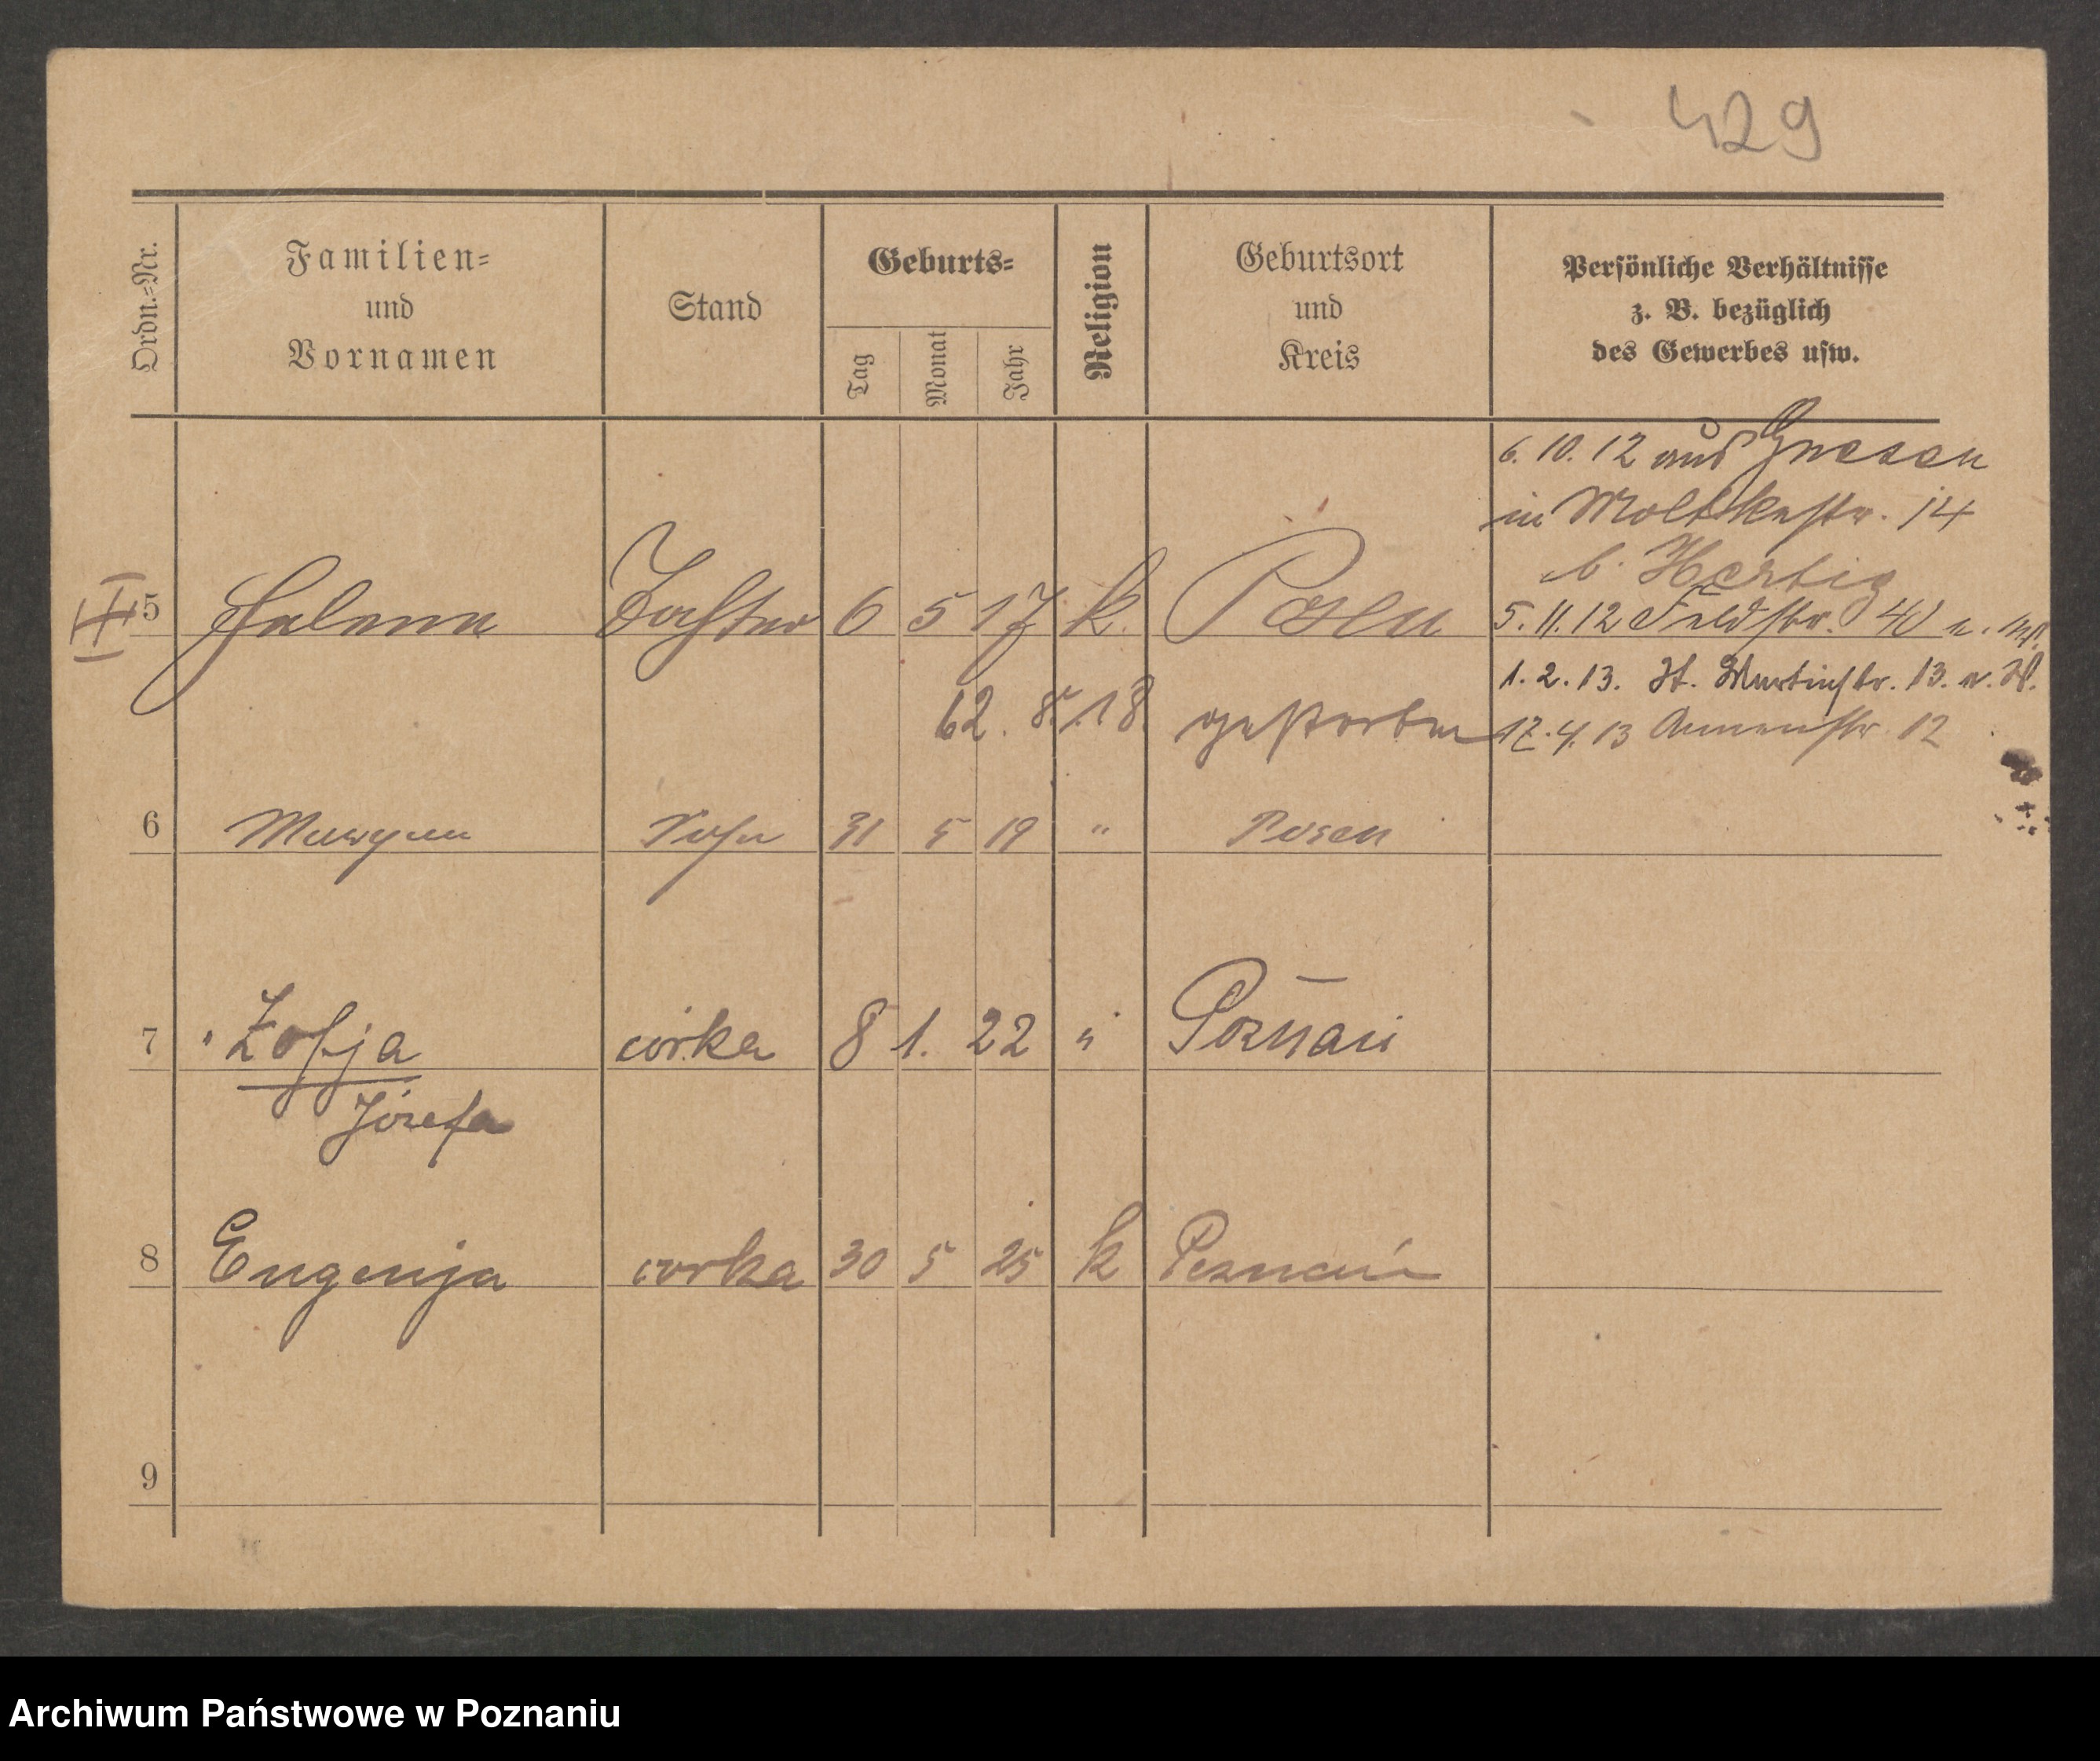 429
Ordn.=Nr.
Familien=
und
Vornamen
Stand
Geburts=
Tag
Monat
Jahr
Religion
Geburtsort
und
Kreis
Persönliche Verhältnisse
z. B. bezüglich
des Gewerbes usw.
6. 10. 12 aus Gnesen
in Moltkestr. 14
b. Hertig
5 Helena Tochter 6 5 17 k. Posen 5. 11. 12 Feldstr.
1. 2. 13. St. Martinstr. 13.
8. 18. gestorben 17. 4. 13 Annenstr. 12
6 Maryan Sohn 31 5 19 " Posen
7 Zofja córka 8 1. 22 " Poznań
Józefa
8 Eugenja corka 30 5 25 k Poznań
9
Archiwum Państwowe w Poznaniu